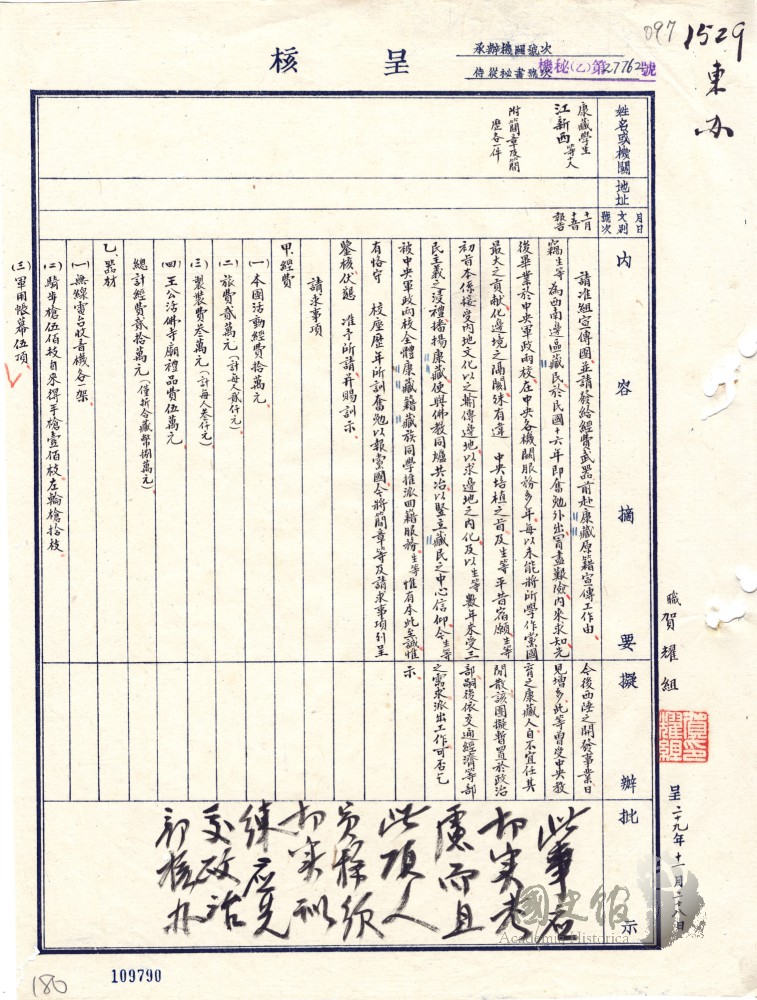 097
1529
東办
呈核
承辦機關號次
侍從秘書號次
機秘(乙)第27762號
姓名或機關
地址
月日
文別
號次
內容摘要
擬辦
批示
康藏學生
江新西等十人
附簡章及簡
歷各一件
十一月
十五日
報告
請准組宣傳團並請發給經費武器前赴康藏原籍宣傳工作由
竊生等為西南邊區藏民於民國十六年即奮勉外出冒盡艱險內來求知先
後畢業於中央軍政兩校在中央各機關服務多年每以未能將所學作黨國
最大之貢獻化邊境之隔閡殊有違 中央培植之旨及生等平昔宿願生等
初旨本係接受內地文化以之輸傳邊地以求邊地之內化及以生等數年來受三
民主義之浸禮播揚康藏使與佛教同爐共冶以堅立藏民之中心信仰今生等
被中央軍政兩校全體康藏籍藏族同學推派回籍服務生等惟有本此至誠惟
有恪守 校座歷年所訓奮勉以報黨國今將簡章等及請求事項列呈
鑒核伏懇 准予所請并賜訓示
請求事項
甲、經費
(一)本團活動經費拾萬元
(二)旅費貳萬元(計每人貳仟元)
(三)製裝費叁萬元(計每人叁仟元)
(四)王公活佛寺廟禮品費伍萬元
總計經費貳拾萬元(僅折合藏幣捌萬元)
乙、器材
(一)無線電台收音機各一架
(二)騎步槍伍佰枝自來得手槍壹佰枝左輪槍拾枝
(三)軍用帳幕伍頂
今後西陸之開發事業日
見增多此等曾受中央教
育之康藏人自不宜任其
閒散該團擬暫置於政治
部嗣後依交通經濟等部
之需求派出工作可否乞
示
此事應
切實考
慮而且
此項人
員猶須
切實訓
練應先
交政治
部核办
職賀耀組
賀耀組印
呈 二十九年十一月二十八日
國史館
Academia Historica
180
109790